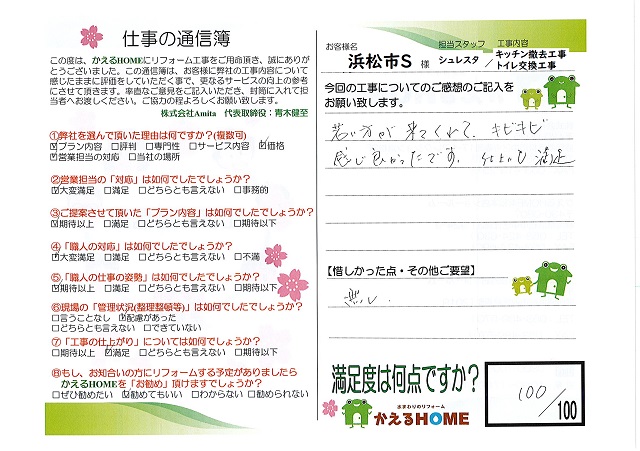 仕事の通信簿
この度は、かえるHOMEにリフォーム工事をご用命頂き、誠にありがとうございました。この通信簿は、お客様に弊社の工事内容について感じたままに評価をしていただく事で、更なるサービスの向上の参考にさせて頂きます。率直なご意見をご記入いただき、封筒に入れて担当者へお渡しください。ご協力の程よろしくお願い致します。
株式会社Amita 代表取締役：青木健至
①弊社を選んで頂いた理由は何ですか？(複数可)
☑プラン内容 □評判 □専門性 □サービス内容 ☑価格
☑営業担当の対応 □当社の場所
②営業担当の「対応」は如何でしたでしょうか？
☑大変満足 □満足 □どちらとも言えない □事務的
③ご提案させて頂いた「プラン内容」は如何でしたでしょうか？
☑期待以上 □満足 □どちらとも言えない □期待以下
④「職人の対応」は如何でしたでしょうか？
☑大変満足 □満足 □どちらとも言えない □不満
⑤「職人の仕事の姿勢」は如何でしたでしょうか？
☑期待以上 □満足 □どちらとも言えない □期待以下
⑥現場の「管理状況(整理整頓等)」は如何でしたでしょうか？
□言うことなし ☑配慮があった
□どちらとも言えない □できていない
⑦「工事の仕上がり」については如何でしょうか？
□期待以上 ☑満足 □どちらとも言えない □期待以下
⑧もし、お知合いの方にリフォームする予定がありましたら
かえるHOMEを「お勧め」頂けますでしょうか？
□ぜひ勧めたい ☑勧めてもいい □わからない □勧められない
お客様名
浜松市S 様
担当スタッフ
シュレスタ
工事内容
／キッチン撤去工事
トイレ交換工事
今回の工事についてのご感想のご記入を
お願い致します。
若い方が来てくれて、キビキビ
感じ良かったです。仕上りも満足
【惜しかった点・その他ご要望】
無し
満足度は何点ですか？
100/100
水まわりのリフォーム
かえるHOME